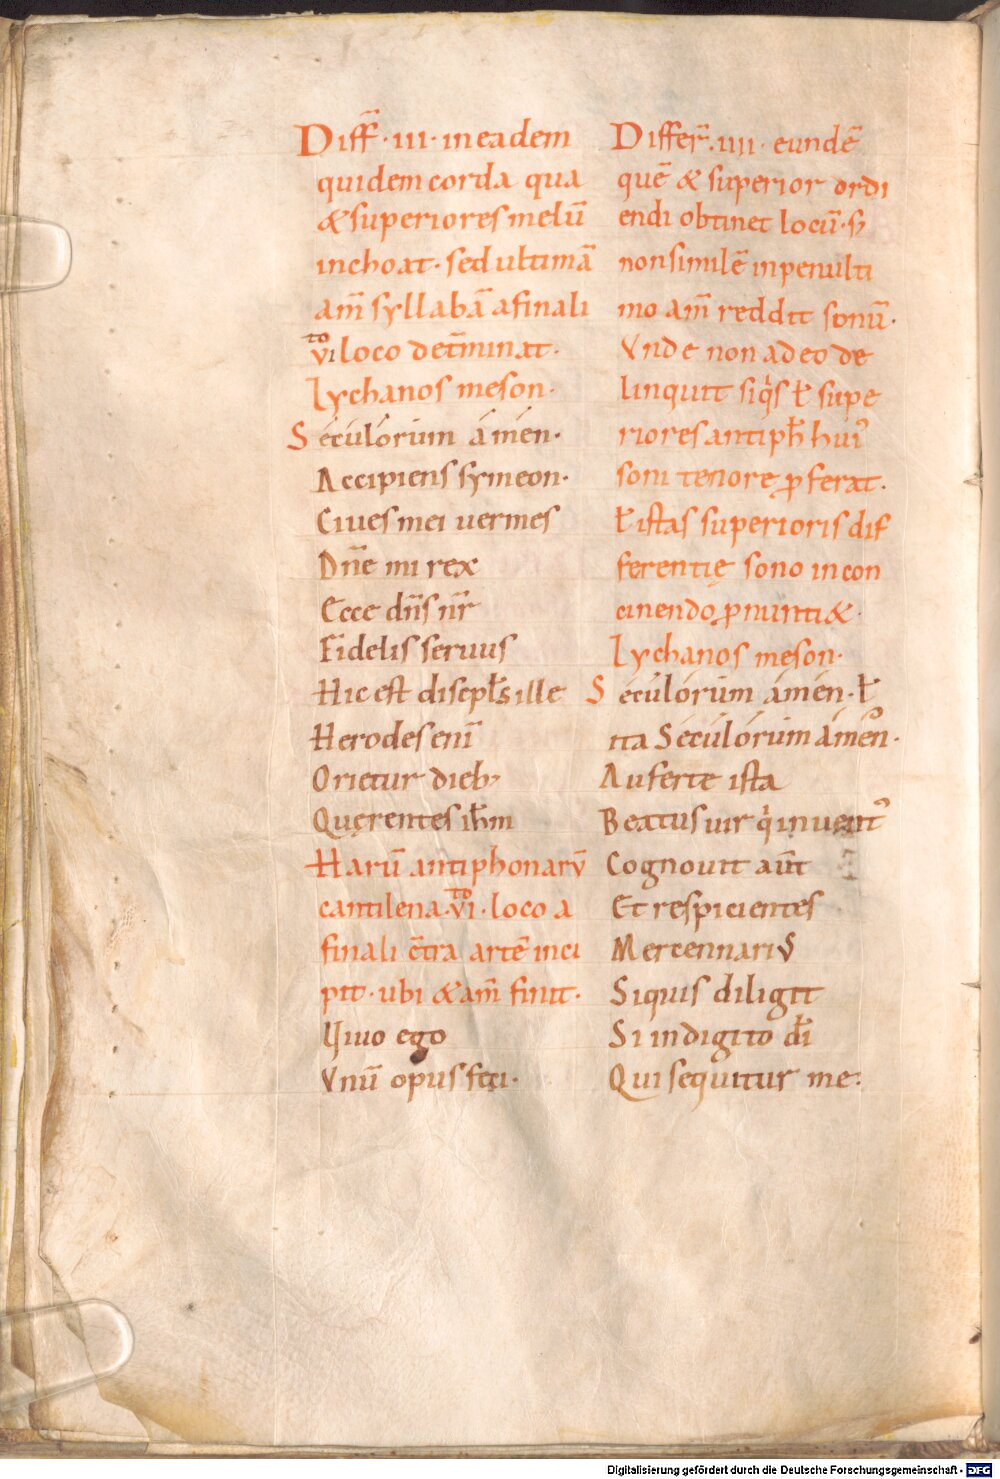 Diff̄·iii· in eadem
quidem corda qua
& superiores melū
inchoat· sed ultimā
am̄ syllabā a finali
vi^to loco det̄minat·
Lychanos meson·
Seculorum amen·
Accipiens symeon·
Ciues mei uermes
Dn̄e mi rex
Ecce dn̄s nr̄
Fidelis seruus
Hic est discipłs ille
Herodes eni̅
Orietur dieb;
Quęrentes ih̄m
Harū antiphonarū
cantilena·vi^to·loco a
finali c̄tra artē inci
pit· ubi & am̄ finit·
Qui uo ego
Vnū opus feci·
Differ̄·iiii· eundē
quē & superior ordi
endi obtinet locū· s;
non similē in penulti
mo am̄ reddit sonū·
Vnde non adeo de
linquit siq̍s ł supe
riores antiph̄ hui᾽
soni tenore ꝓferat·
ł istas superioris dif
ferentię sono in con
cinendo ꝓnunti&·
Lychanos meson·
Seculorum amen· ł
ita Seculorum amen·
Auferte ista
Beatus uir q̍ inuent᾽
Cognouit aūt
Et respicientes
Mercennariꝰ
Siquis diligit
Si in digito dī
Qui sequitur me·
Digitalisierung gefördert durch die Deutsche Forschungsgemeinschaft - DFG